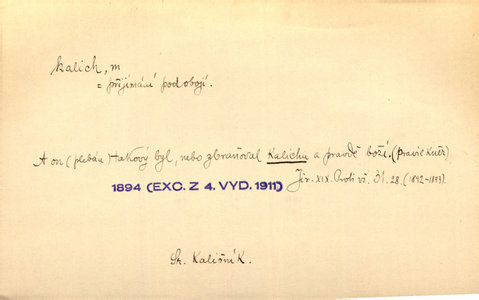 kalich, m
= přijímání pod obojí.
A on (plebán) takový byl, nebo zbraňoval Kalichu a pravdě boží. (pravil Kněz)
1894 (EXC. Z 4. VYD. 1911) Jir. XIX. Proti vš. 31. 28. (1892-1893).
Sr. Kališník.